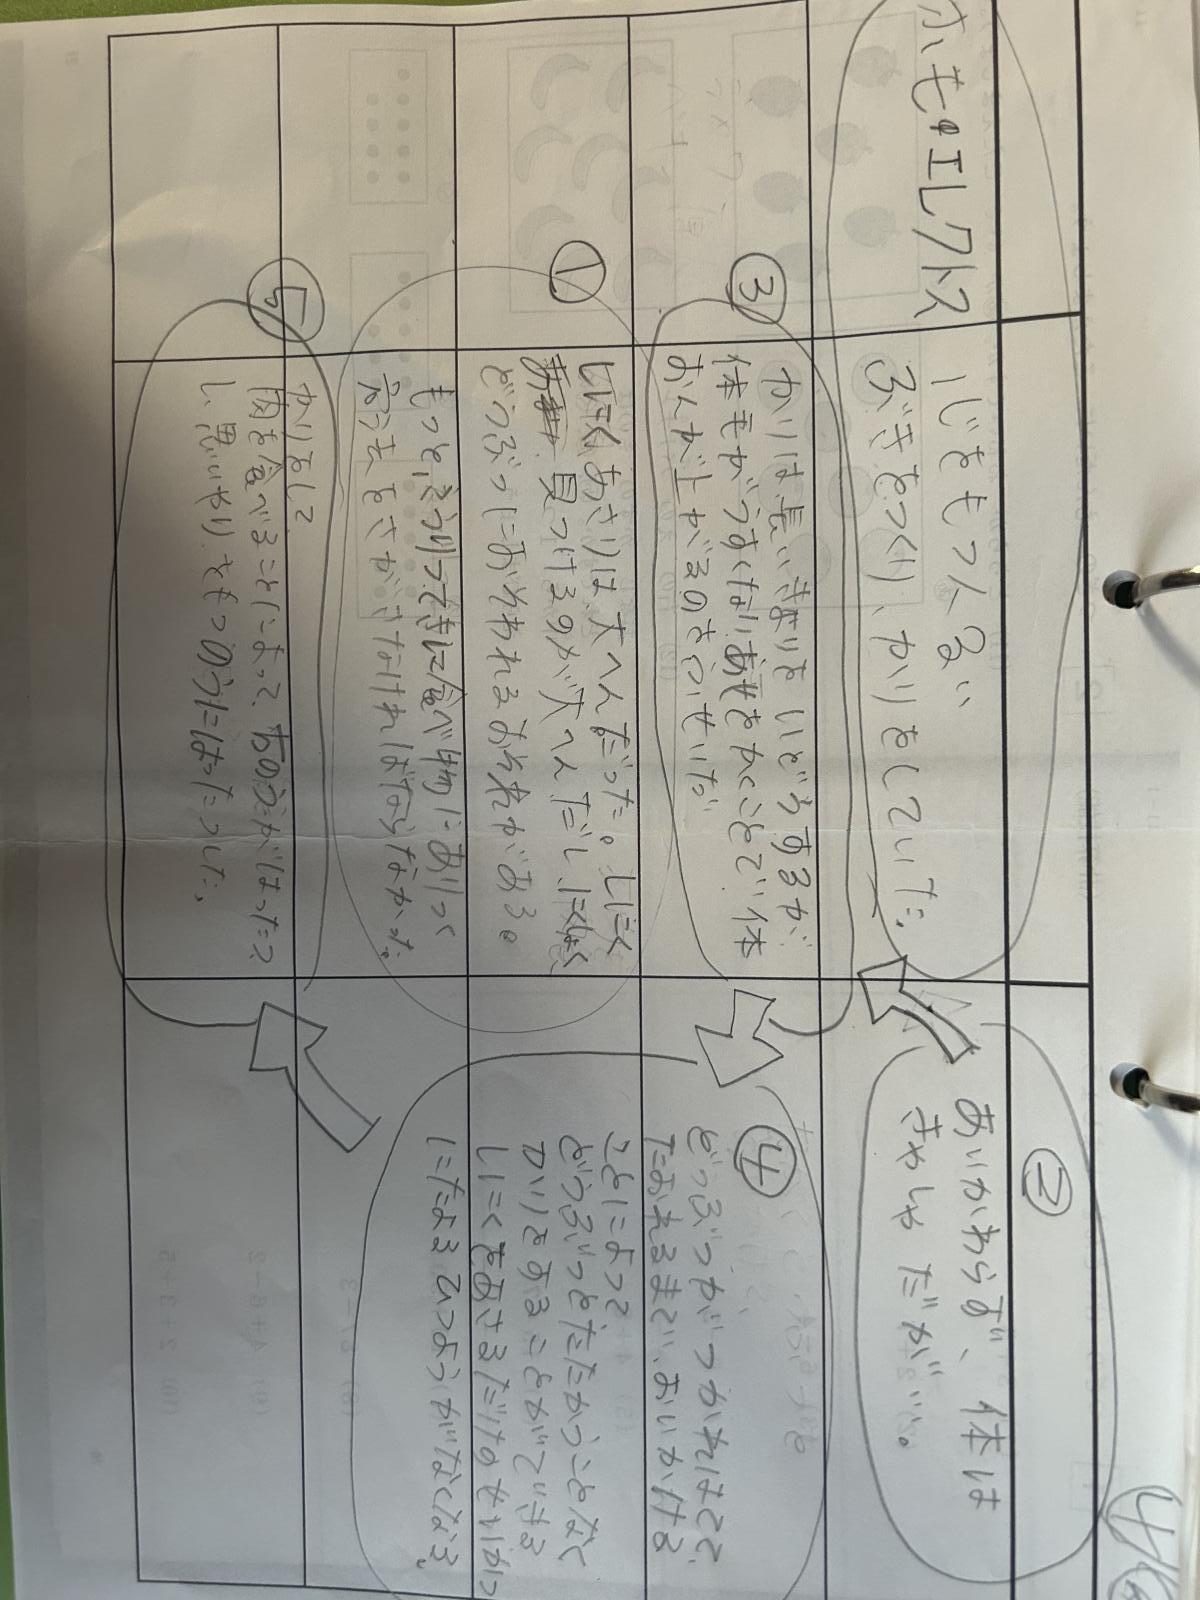 ホモエレクトス
じをもつ人るい
ぶきをつくり、かりをしていた。
②
あいかわらず、体は
きゃしゃだが…。
③
かりは長いきょりをいどうするが
体毛がうすくなりあせをかくことで体
おんが上がるのをふせいだ
①
しにくあさりは、大へんだった。しにく
見つけるのが大へんだし、にく食
どうぶつにおそわれるおそれがある。
もっと、きまって食べ物にありつく
方法をさがさなければならなかった。
④
どうぶつがつかれはてて、
たおれるまで、おいかける
ことによって
どうぶつとたたかうことなく
かりをすることができる
しにくをあさるだけのせいかつ
にたよるひつようがなくなる。
⑤
かりをして
肉を食べることによって、ちのうがはったつ
し、思いやりをもつのうにはったつした。